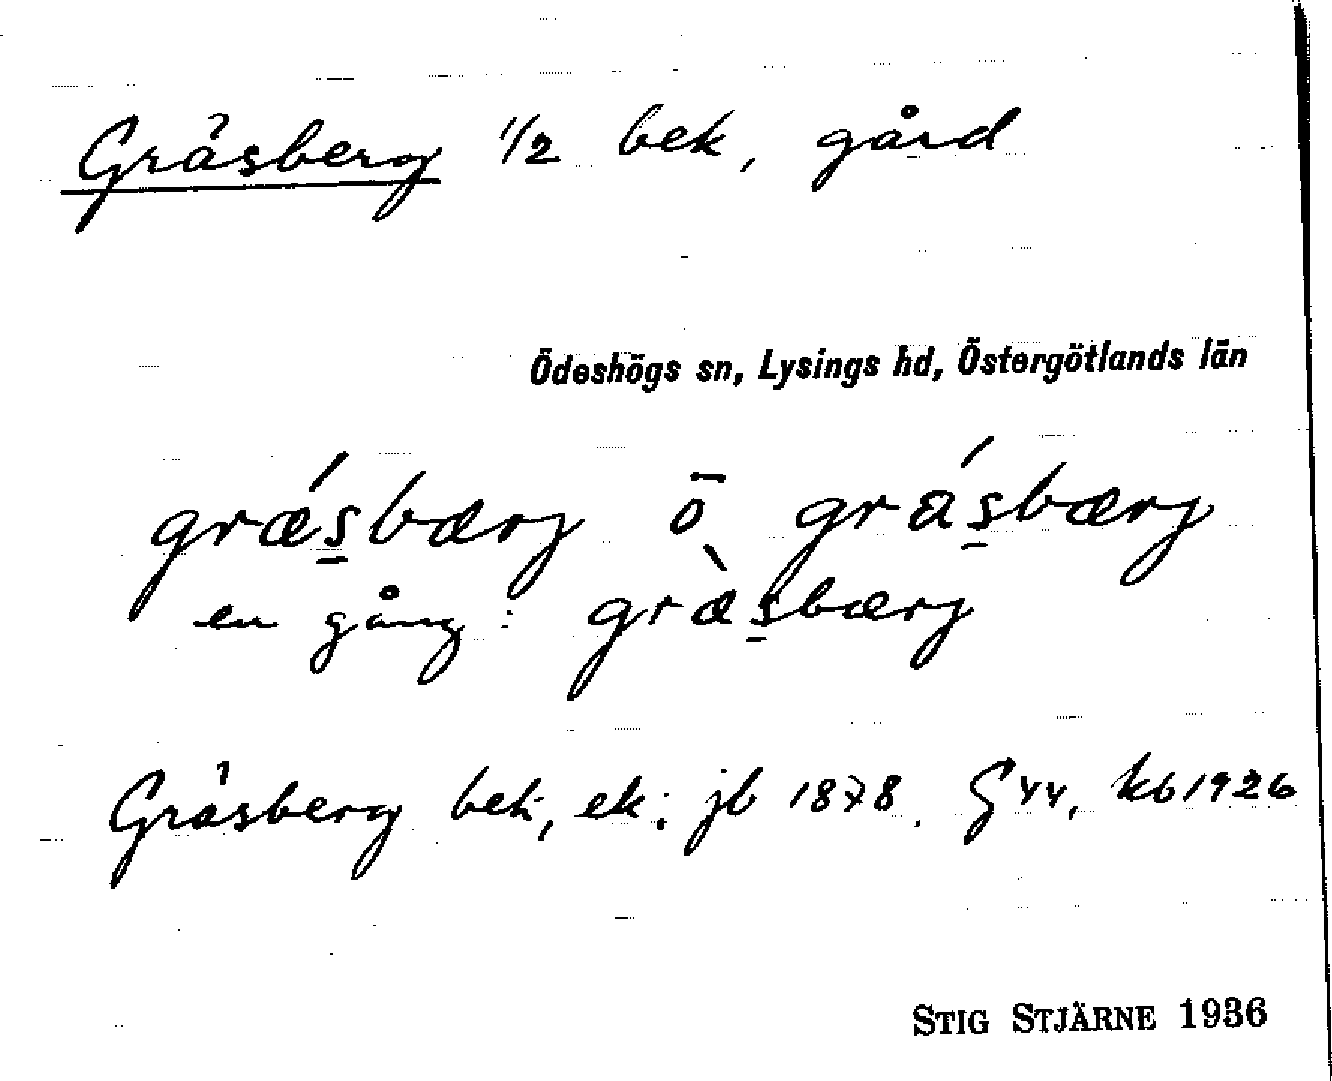 Gräsberg 1/2 bek, gård
Ödeshögs sn, Lysings hd, Östergötlands län
græ´sbærj ō gra´sbærj
en gång: græ`sbærj
Gräsberg bek, ek: jb 1878. G 44, kb 1926
STIG STJÄRNE 1936